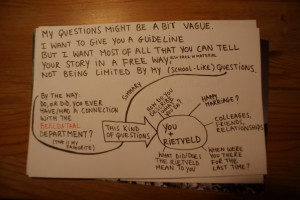 MY QUESTIONS MIGHT BE A BIT VAGUE.
I WANT TO GIVE YOU A GUIDELINE
BUT I WANT MOST OF ALL THAT YOU CAN TELL
YOUR STORY IN A FREE WAY,
NOT BEING LIMITED BY MY (SCHOOL-LIKE) QUESTIONS
Summary
BY THE WAY:
DO, OR DID, YOU EVER
HAVE/HAD A CONNECTION
WITH THE
DEPARTMENT?
(THIS IS MY
FAVOURITE)
THIS KIND
OF QUESTIONS
HOW DO YOU
YOU
+
RIETVELD
HAPPY
MARRIAGE?
COLLEAGES,
FRIENDS,
RELATIONSHIPS
WHEN WERE
YOU THERE
FOR THE
LAST TIME?
WHAT DID/DOES
THE RIETVELD
MEAN TO YOU